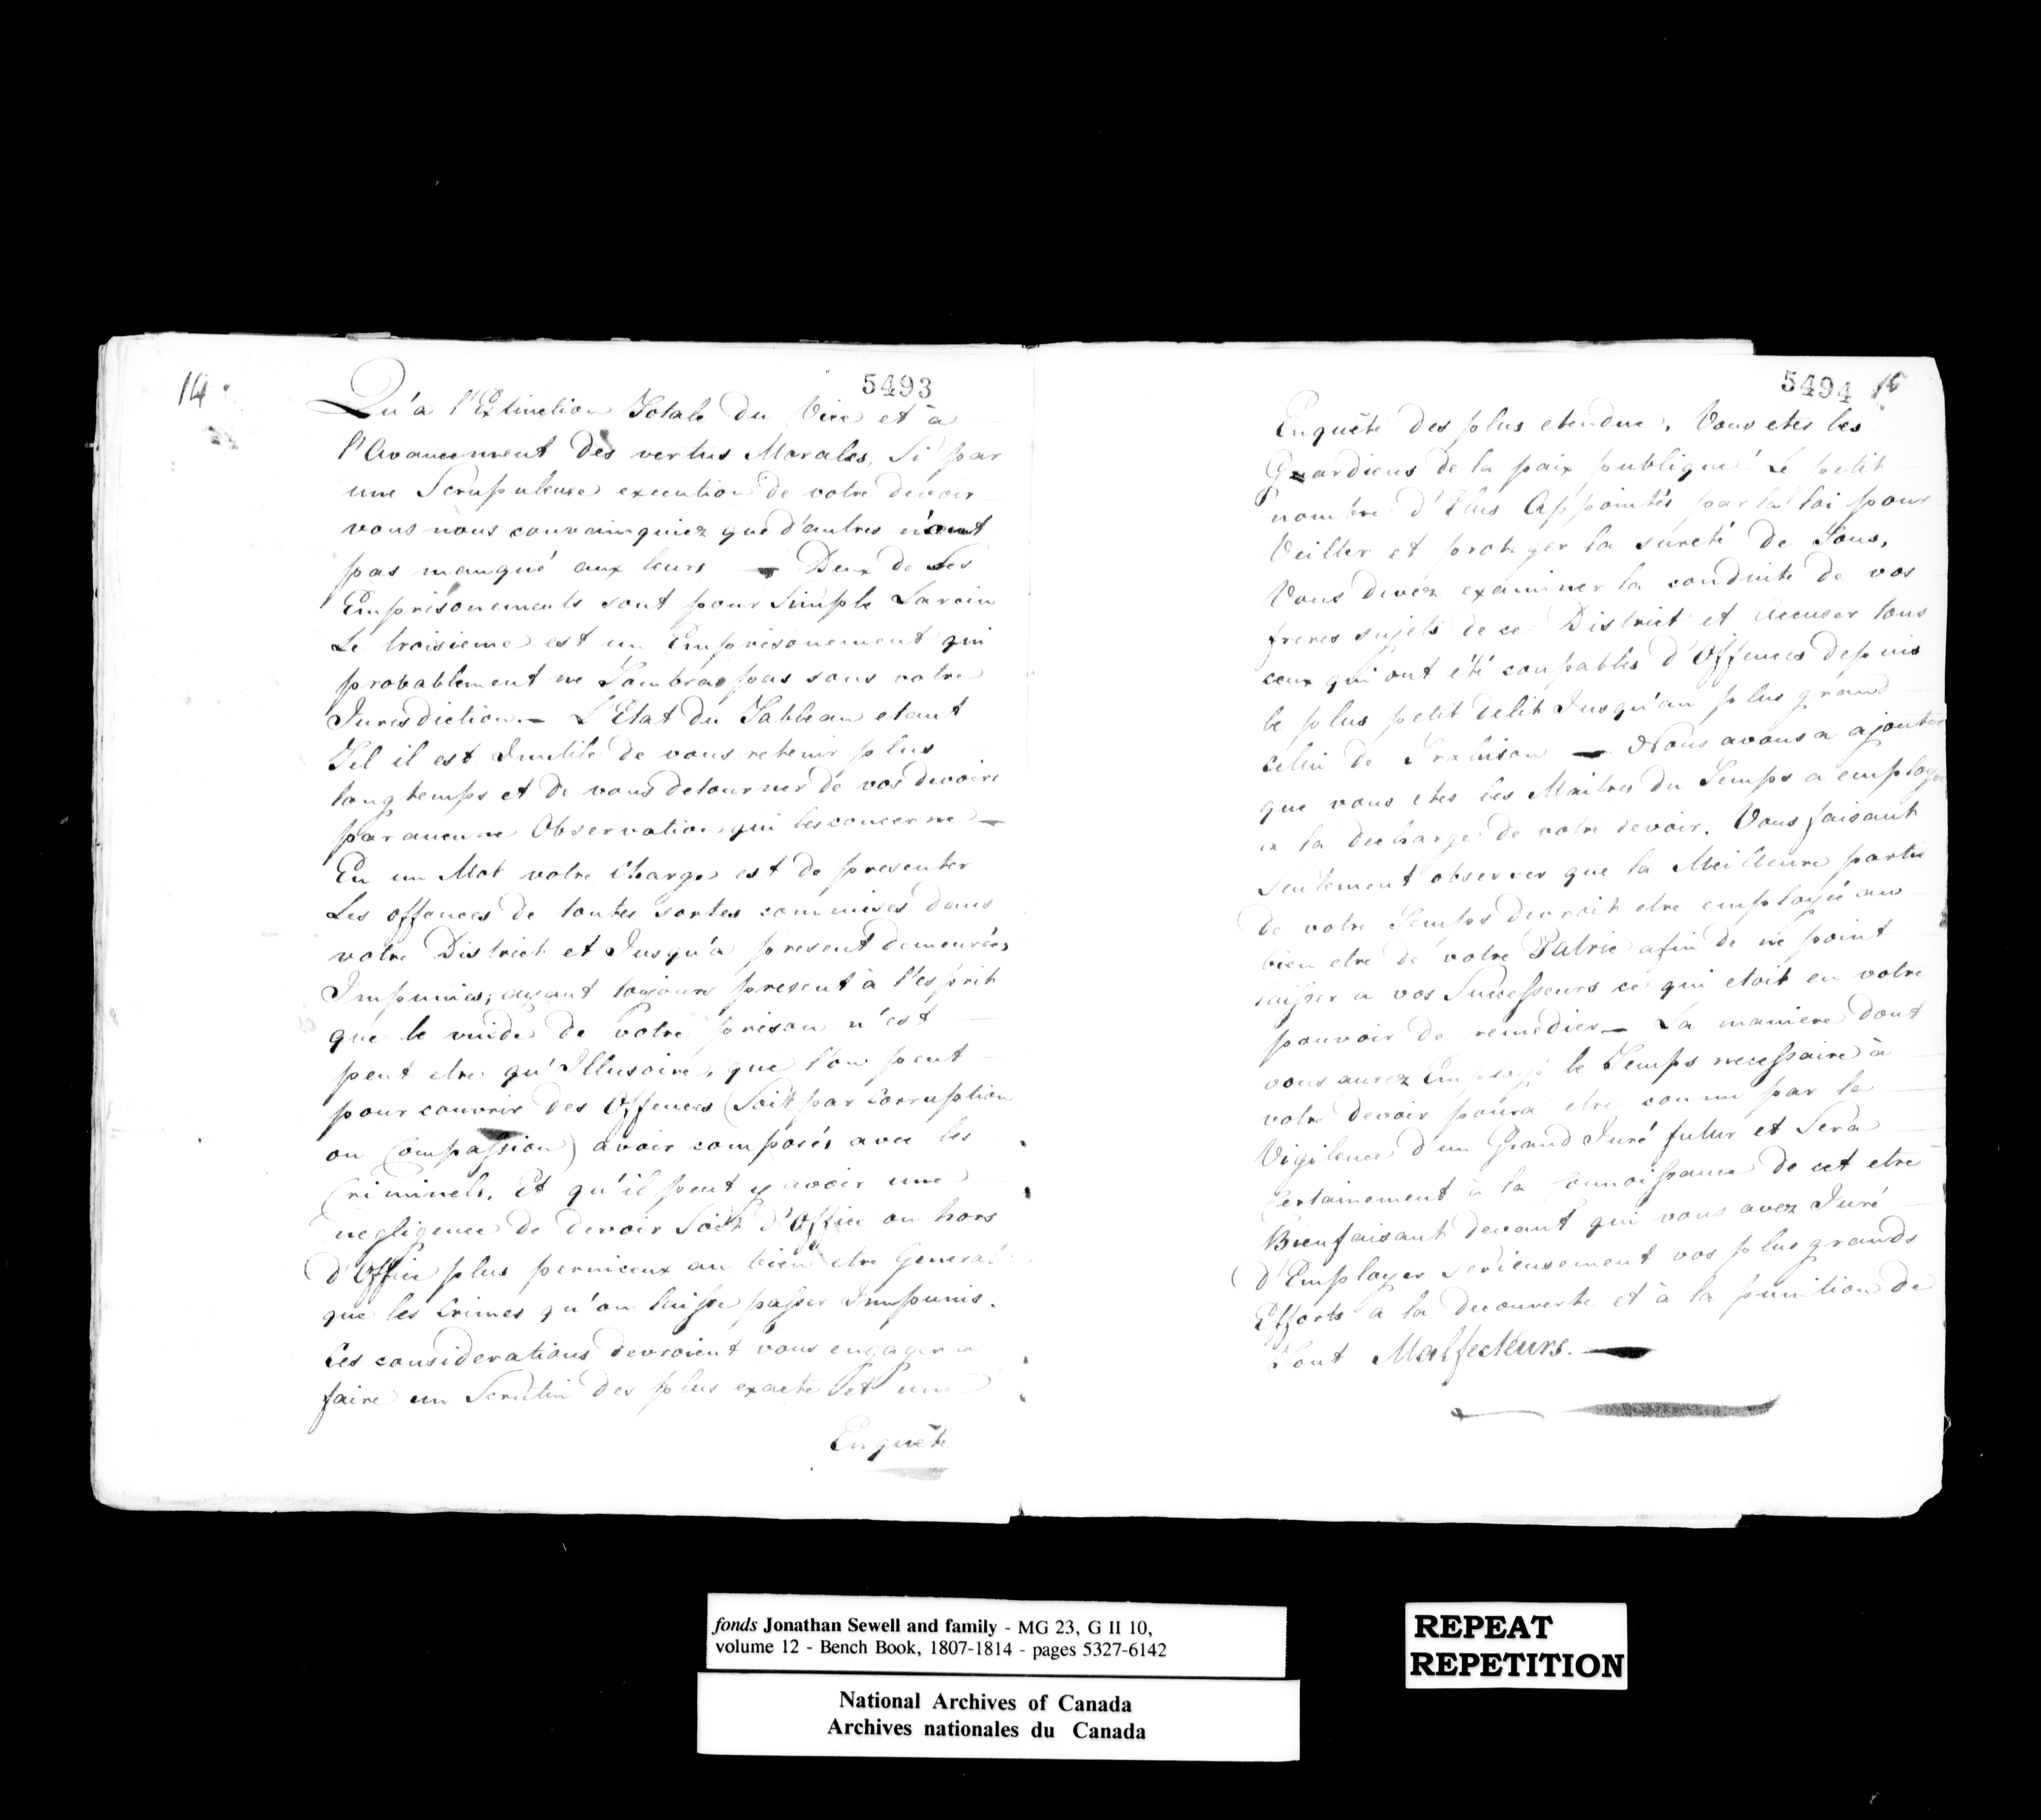 14
5493
Qu'a l'Extinction Totale du Vice et à
l'Avancement des vertus Morales, Si par
une Scrupuleuse execution de votre devoir
vous nous convainquiez que d'autres n'ont
pas manqué aux leurs — Deux de Ses
Emprisonements sont pour Simple Larcin
Le troisieme est un Emprisonement qui
probablement ne Tombra pas sous votre
Jurisdiction. — L'Etat du Tableau etant
Tel il est Inutile de vous retenir plus
longtemps et de vous detourner de vos devoirs
par aucune Observation qui les concerne —
En un Mot votre Charge est de presenter
Les offences de toutes sortes commises dans
votre District et Jusqu'a present demeurées
Impunies; ayant toujours present à l'esprit
que le vuide de votre prison n'est
peut etre qu'Illusoire, que l'on peut
pour couvrir des Offences (Soit par Corruption
ou Compassion) avoir composés avec les
Criminels, Et qu'il peut y avoir une
negligence de devoir Soit d'Office ou hors
d'Office plus pernicieux au bien etre General
que les Crimes qu'on laisse passer Impunis.
Ces considerations devroient vous engager a
faire un Scrutin des plus exacte et une
Enquête
5494 15
Enquête des plus etendue, Vous etes les
Guardiens de la paix publique! Le petit
nombre d'Elus Appointés par la loi pour
Veiller et proteger la sureté de Tous,
Vous devéz examiner la conduite de vos
freres sujets de ce District et Accuser tous
ceux qui ont été coupables d'Offences depuis
le plus petit delit Jusqu'au plus grand
celui de Trahison — Nous avons a ajouter
que vous etes les Maitres du Temps a employer
a la decharge de votre devoir. Vous faisant
seulement observer que la Meilleure partie
de votre Temps devroit etre employée au
bien etre de votre Patrie afin de ne point
laisser a vos Successeurs ce qui etoit en votre
pouvoir de remedier — La maniere dont
vous aurez Employé le Temps necessaire à
votre devoir poura etre connu par la
Vigilence d'un Grand Juré futur et Sera
Certainement à la Connoissance de cet etre
Bienfaisant devant qui vous avez Juré
d'Employer serieusement vos plus grands
Efforts a la decouverte et à la punition de
Tout Malfecteurs. —
fonds Jonathan Sewell and family - MG 23, G II 10,
volume 12 - Bench Book, 1807-1814 - pages 5327-6142
National Archives of Canada
Archives nationales du Canada
REPEAT
REPETITION